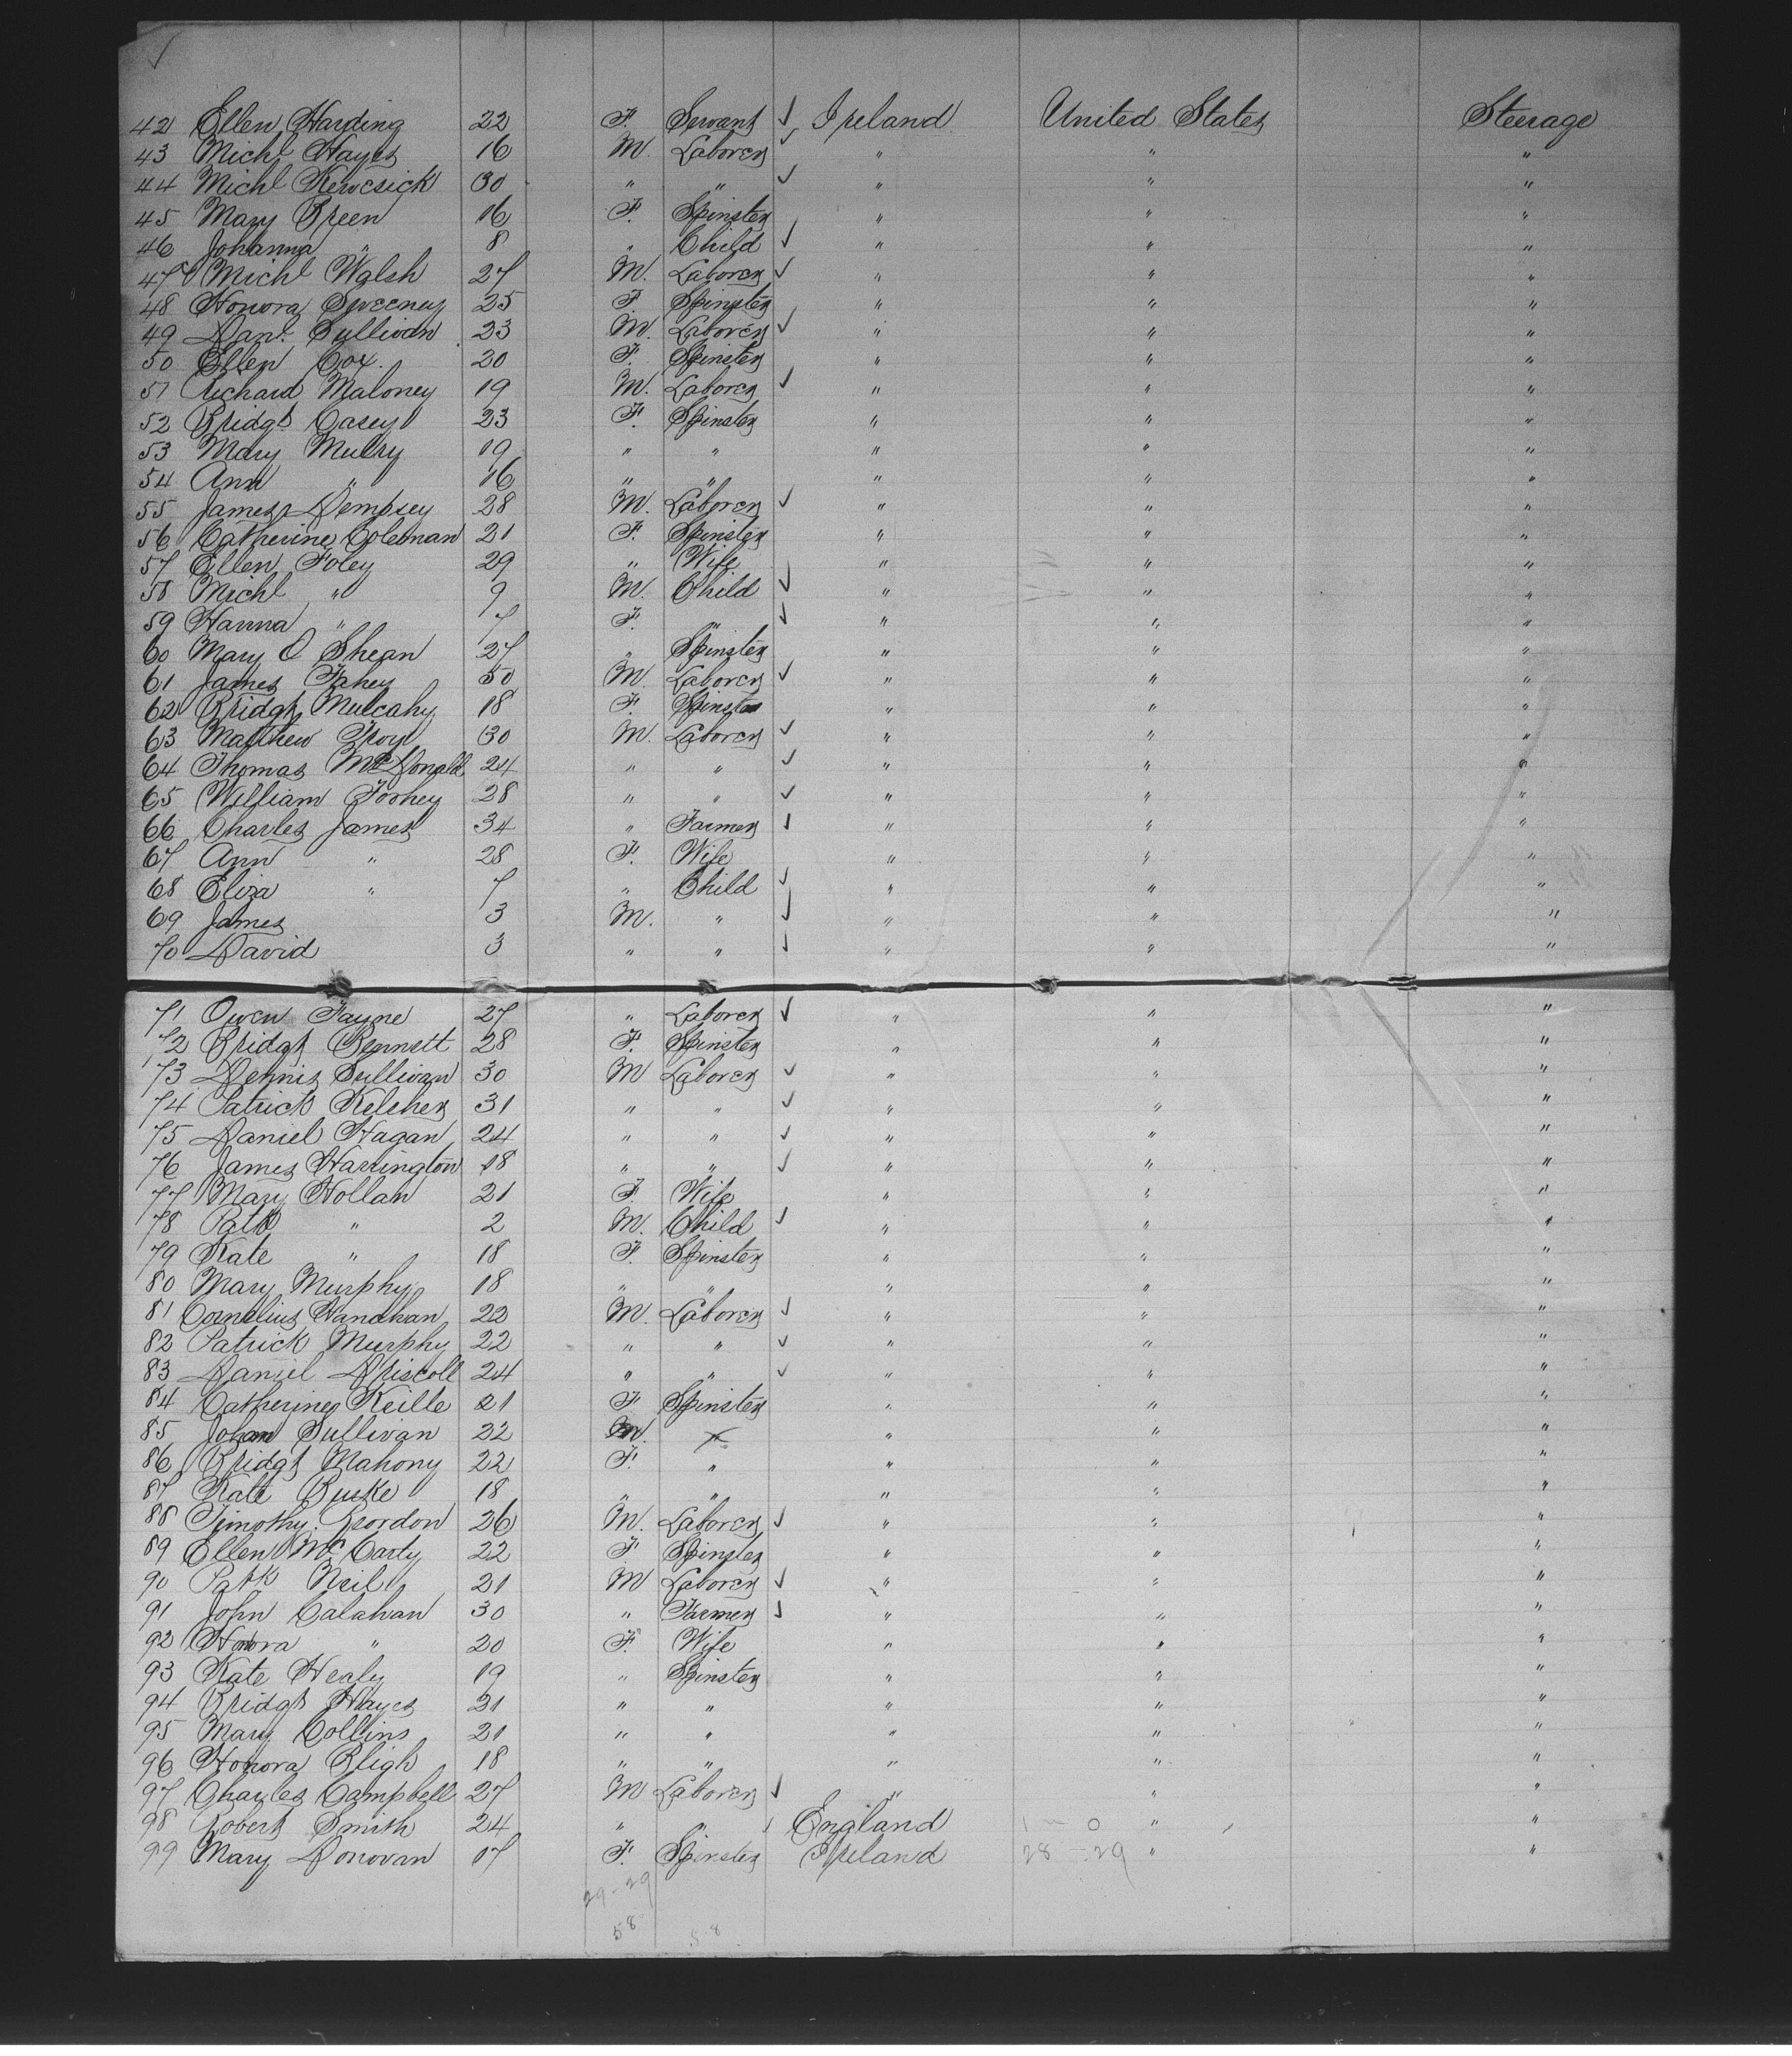 42 Ellen Harding 22 F. Servant ✓ Ireland United States Steerage
43 Michl Hayes 16 M. Laborer ✓ " " "
44 Michl 30 " " ✓ " " "
45 Mary Breen 16 F. Spinster " " "
46 Johanna " 8 " Child ✓ " " "
47 Michl Walsh 27 M. Laborer ✓ " " "
48 Honora Sweeney 25 F Spinster " " "
49 Danl. Sullivan 23 M. Laborer ✓ " " "
50 Ellen Cox. 20 F. Spinster " " "
51 Richard Maloney 19 M. Laborer ✓ " " "
52 Bridgt. Casey 23 F. Spinster " " "
53 Mary Mulry 19 " " " " "
54 Ann " 16 " " " " "
55 James Dempsey 28 M. Laborer ✓ " " "
56 Catherine Coleman 21 F. Spinster " " "
57 Ellen Foley 29 " Wife " " "
58 Michl " 9 M. Child ✓ " " "
59 Hanna " 7 F. " ✓ " " "
60 Mary O Shean 27 " Spinster " " "
61 James Fahey 50 M. Laborer ✓ " " "
62 Bridgt Mulcahy 18 F. Spinster " " "
63 Matthew Troy 30 M. Laborer ✓ " " "
64 Thomas McDonald 24 " " ✓ " " "
65 William 28 " " ✓ " " "
66 Charles James 34 " Farmer ✓ " " "
67 Ann " 28 F. Wife " " "
68 Eliza " 7 " Child ✓ " " "
69 James 3 M. " ✓ " " "
70 David 3 " " ✓ " " "
71 Owen Fayne 27 " Laborer ✓ " " "
72 Bridgt Bennett 28 F. Spinster " " "
73 Dennis Sullivan 30 M Laborer ✓ " " "
74 Patrick Kelcher 31 " " ✓ " " "
75 Daniel Hagan 24 " " ✓ " " "
76 James Harrington 18 " " ✓ " " "
77 Mary Hollan 21 F. Wife " " "
78 Patk " 2 M. Child ✓ " " "
79 Kate " 18 F. Spinster " " "
80 Mary Murphy 18 " " " " "
81 Cornelius 22 M. Laborer ✓ " " "
82 Patrick Murphy 22 " " ✓ " " "
83 Daniel Driscoll 24 " " ✓ " " "
84 Catherine Keille 21 F Spinster " " "
85 Sullivan 22 M. " " "
86 Bridgt Mahony 22 F. " " " "
87 Kate Burke 18 " " " " "
88 Timothy Gordon 26 M. Laborer ✓ " " "
89 Ellen McCarty 22 F Spinster " " "
90 Patk Neil 21 M Laborer ✓ " " "
91 John Calahan 30 " Farmer ✓ " " "
92 Honora " 20 F. Wife " " "
93 Kate Healy 19 " Spinster " " "
94 Bridgt Hayes 21 " " " " "
95 Mary Collins 21 " " " " "
96 Honora Bligh 18 " " " " "
97 Charles Campbell 27 M Laborer ✓ " " "
98 Robert Smith 24 " " England 1 — 0 " "
99 Mary Donovan 17 F. Spinster Ireland 28 - 29 " "
29 - 29
58 58